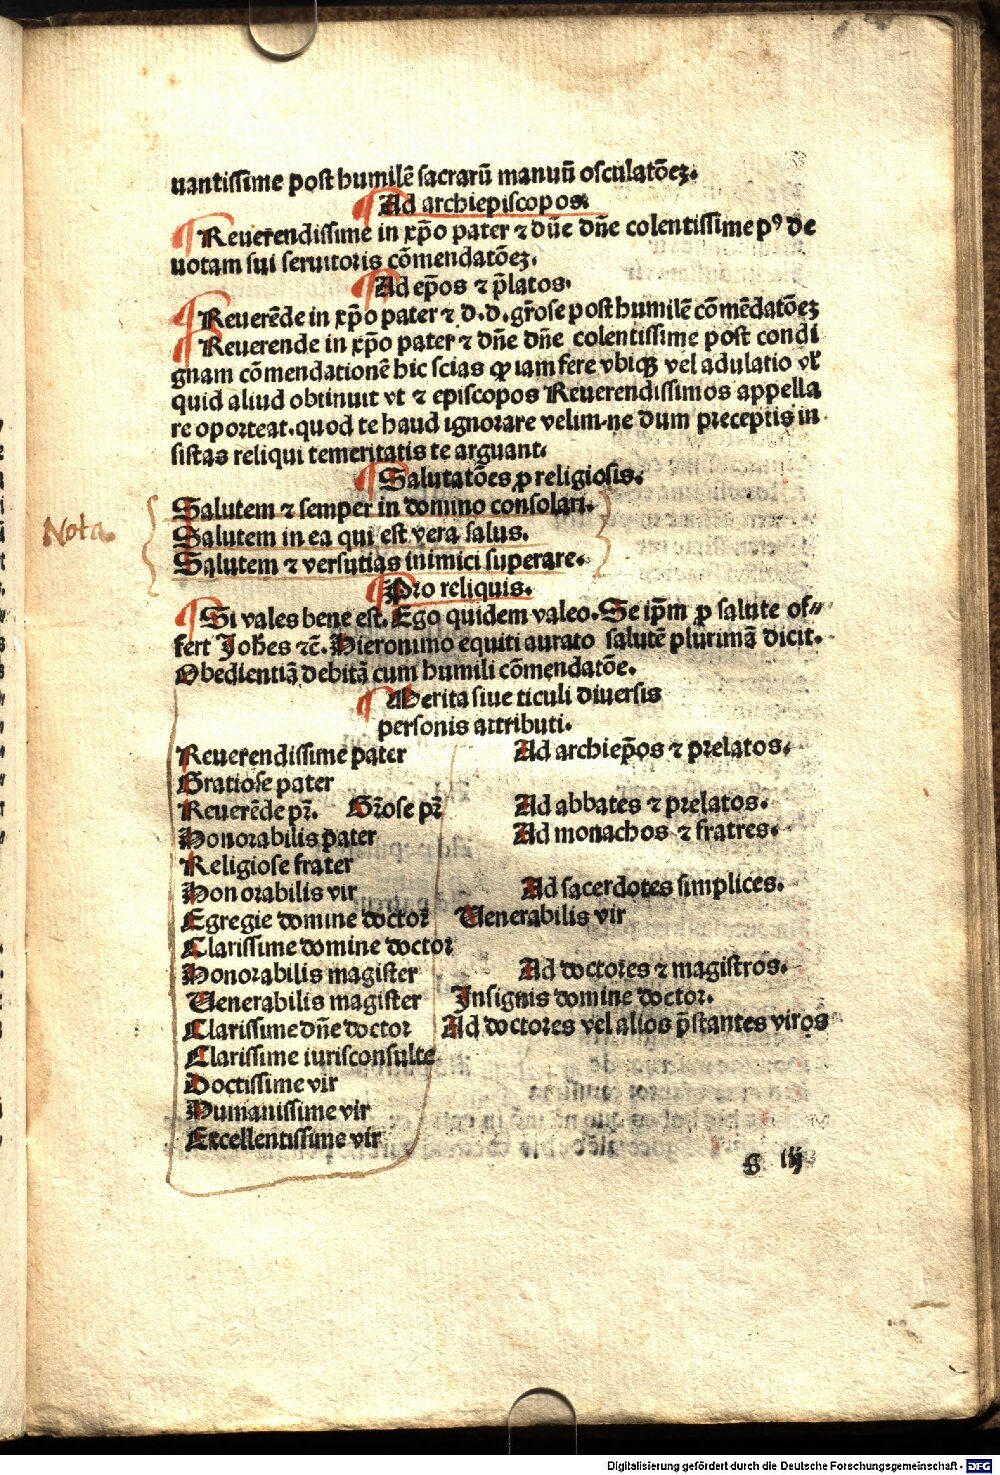 uantissime post humilē sacrarū manuū osculatōeꝫ.
Ad archiepiscopos.
Reuerendissime in xp̄o pater ⁊ dn̄e dn̄e colentissime pꝰ de
uotam sui seruitoris cōmendatōeꝫ.
Ad ep̄os ⁊ p̄latos.
Reuerēde in xp̄o pater ⁊ d.d.gr̄ose post humilē cōmēdatōeꝫ
Reuerende in xp̄o pater ⁊ dn̄e dn̄e colentissime post condi
gnam cōmendationē hic scias ꝙ iam fere vbiqꝫ vel adulatio vl̓
quid aliud obtinuit vt ⁊ episcopos Reuerendissimos appella
re oporteat.quod te haud ignorare velim.ne dum preceptis in
sistas reliqui temeritatis te arguant.
Salutatōes ꝓ religiosis.
Nota
Salutem ⁊ semper in domino consolari.
Salutem in ea qui est vera salus.
Salutem ⁊ versutias inimici superare.
Pro reliquis.
Si vales bene est. Ego quidem valeo. Se ip̄m ꝓ salute of⸗
fert Joh̄es ⁊c̄. Hieronimo equiti aurato salutē plurimā dicit.
Obediētiā debitā cum humili cōmendatōe.
Merita siue ticuli diuersis
personis attributi.
Reuerendissime pater Ad archiep̄os ⁊ prelatos.
Gratiose pater
Reuerēde pr̄. Gr̄ose pr̄ Ad abbates ⁊ prelatos.
Honorabilis pater Ad monachos ⁊ fratres.
Religiose frater
Honorabilis vir Ad sacerdotes simplices.
Egregie domine doctor Uenerabilis vir
Clarissime domine doctor
Honorabilis magister Ad doctores ⁊ magistros.
Uenerabilis magister Insignis domine doctor.
Clarissime dn̄e doctor Ad doctores vel alios p̄stantes viros
Clarissime iurisconsulte
Doctissime vir
Humanissime vir
Excellentissime vir
g iij
Digitalisierung gefördert durch die Deutsche Forschungsgemeinschaft - DFG